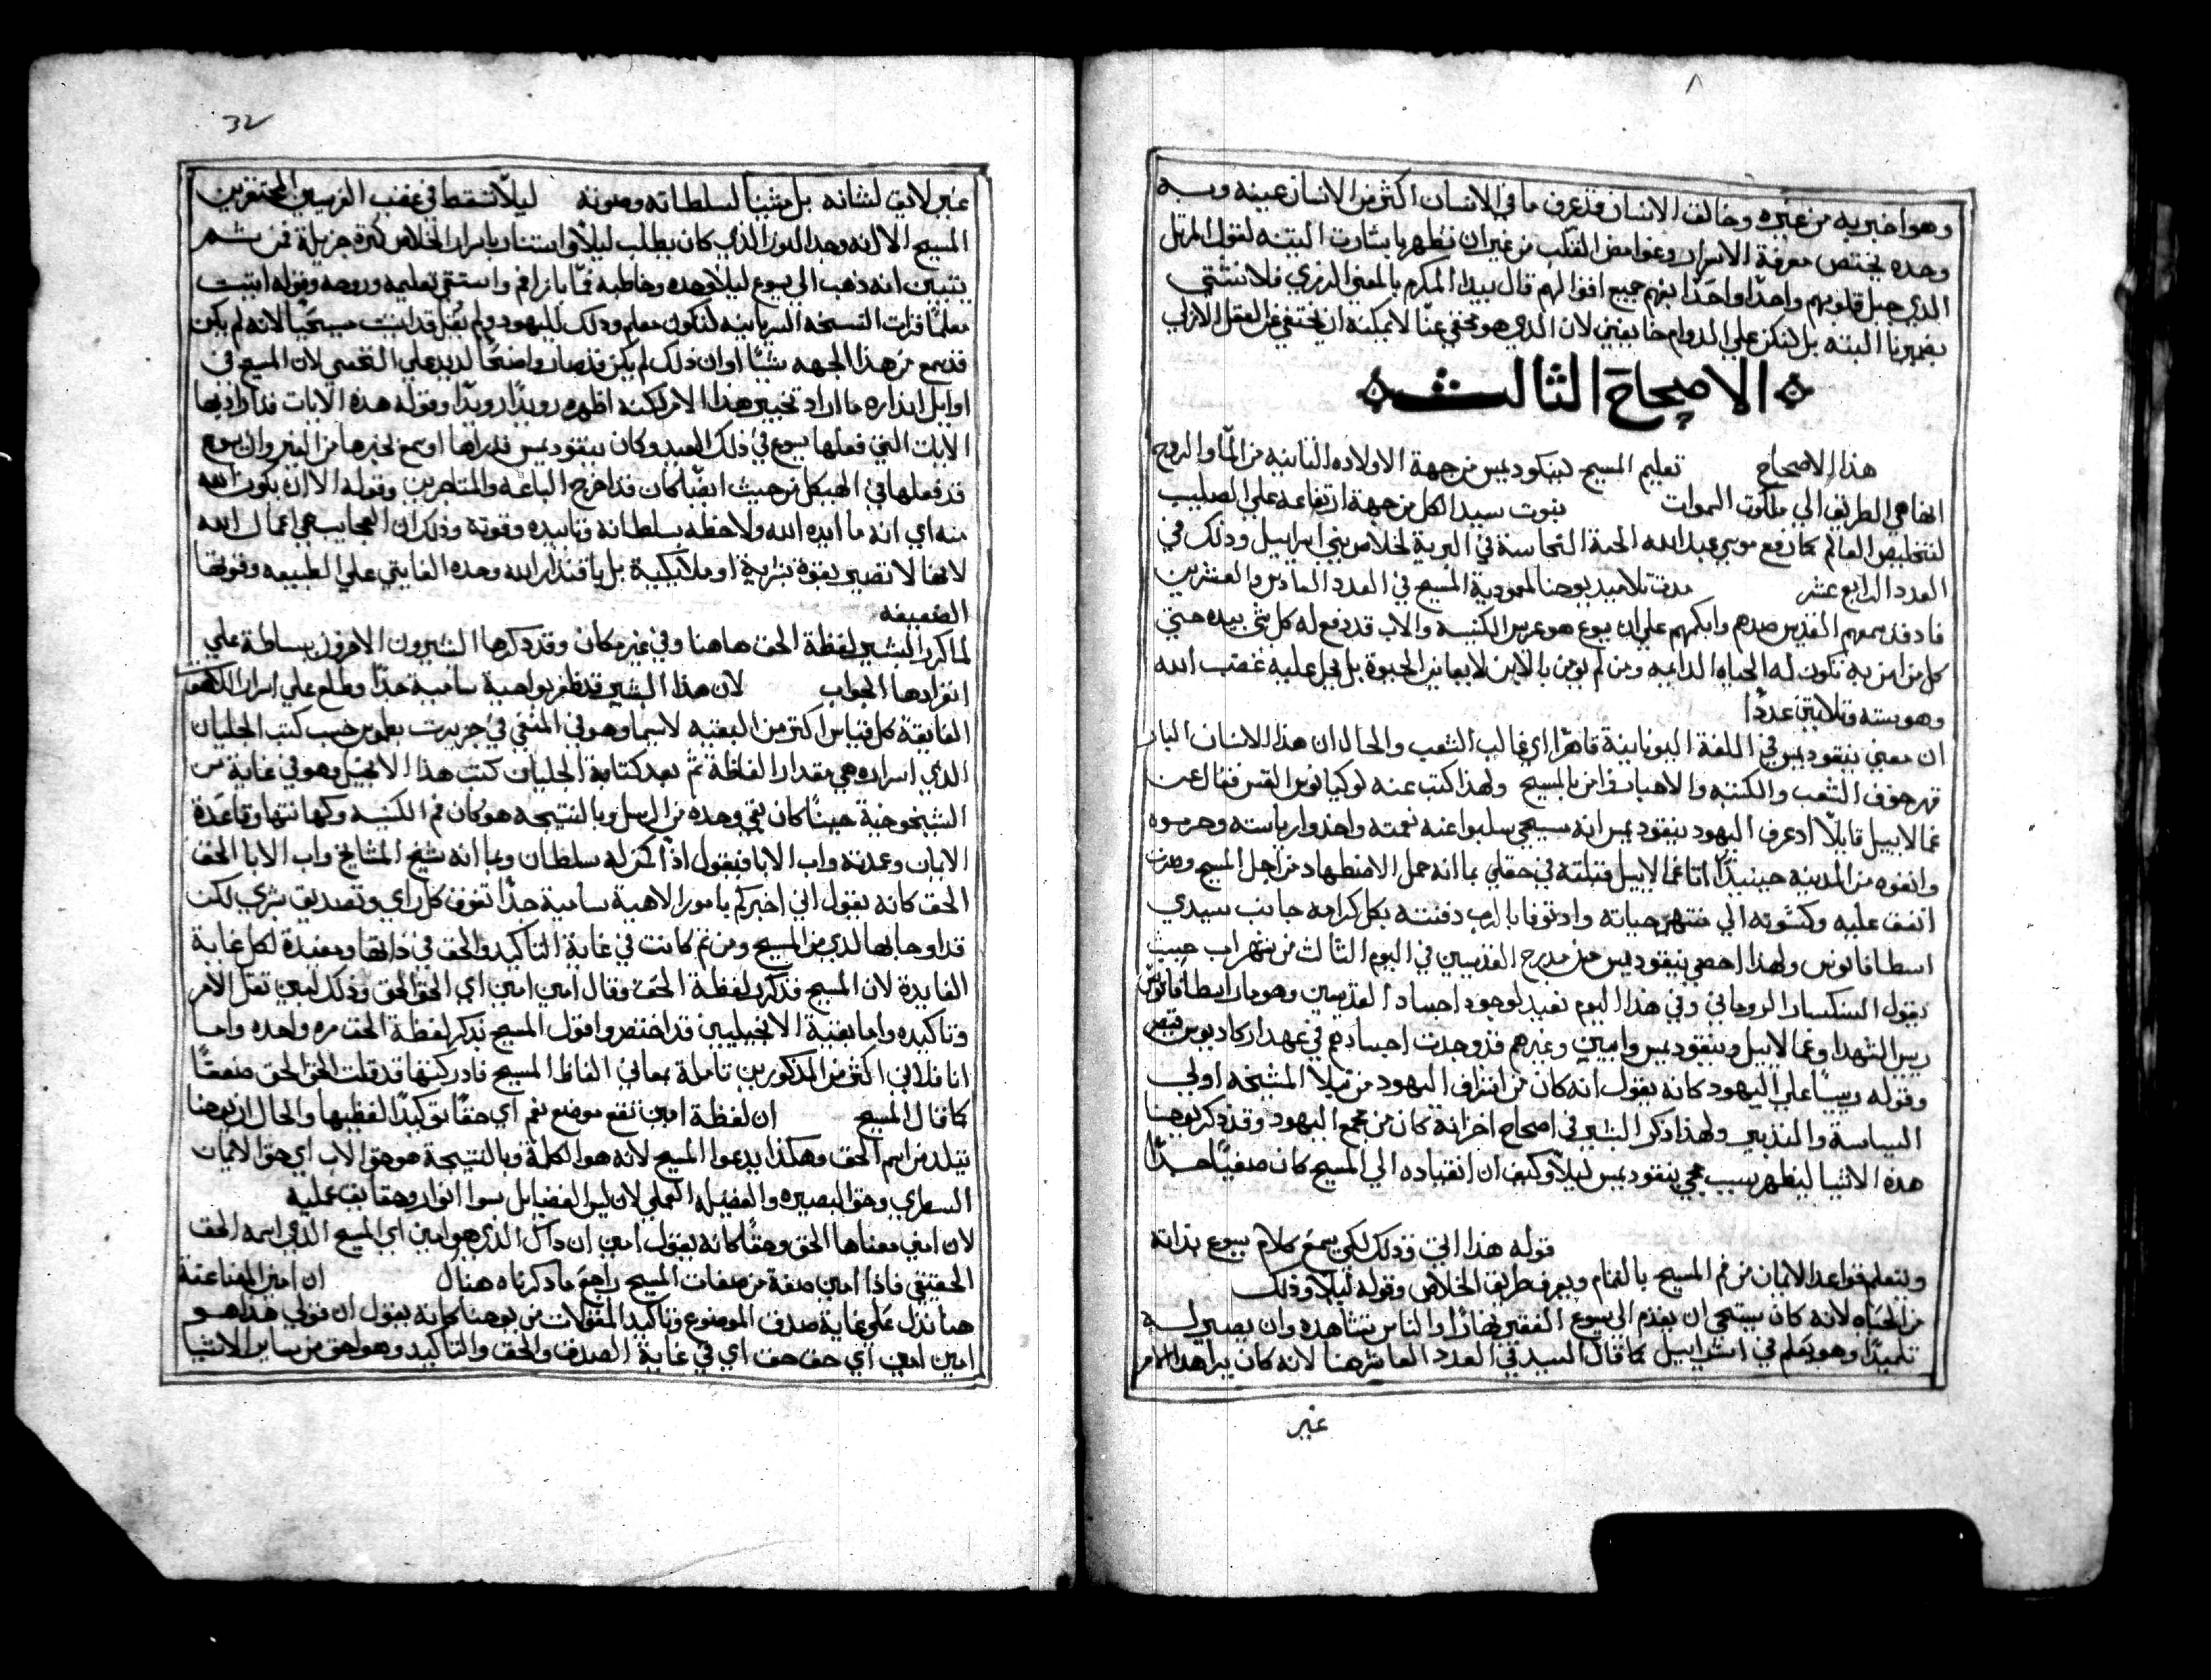 وهو اخبر به من غيره وخالق الانسان قد عرف ما في الانسان اكثر من الانسان عينه وبه
وحده يختص معرفة الاسرار وغوامض القلب من غير ان تظهر باشارت البتيه لقول المرتل
الذي جبل قلوبهم واحدًا واحدًا يفهم جميع افعالهم قال بيدا المكرم بالمعني الرمزي فلا نشتي
بضميرنا البته بل لنكن علي الدوام خايفين لان الذي هو مختفي عنّا لا يمكنه ان يختفي عن العقل الازلي
الاصحاح الثالث
هذا الاصحاح تعليم المسيح لنيكوديمس من جهة الاولاده الثانيه من المآ والروح
انها هي الطريق الي ملكوت السموات بثبوت سيد الكل من جهة ارتفاعه علي الصليب
لتخليص العالم كما رفع موسي عبد الله الحية النحاسة في البرية لخلاص بني اسراييل وذلك في
العدد الرابع عشر تلاميد يوحنا لمعمودية المسيح في العدد السادس والعشرين
القديس وابكمهم علي ان يسوع هو عريس الكنيسه والاب قد دفع له كل شي بيده حتي
كل من امن به تكون له الحياه الدايمه ومن لم يومن بالابن لا يعاين الحيوة بل يحل عليه غضب الله
وهو سته وتلاتين عددًا
ان معني نيقوديمس في اللغة اليونانية قاهرًا اي غالب الشعب والحال ان هذا الانسان البار
قهر خوف الشعب والكتبه والاهبات وامن بالمسيح ولهذا كتب عنه لوكيانوس القس فقال عن
غمالاييل قايلًا اد عرف اليهود نيقوديمس انه مسيحي سلبوا عنه نعمته واخدوا رياسته وحرموه
وانفوه من المدينه حينيدٍ انا غمالاييل قبلته في حقلي بما انه حمل الاضطهاد من اجل المسيح وصرت
انفق عليه وكسوته الي منتهي حياته واد توفا بالرب دفنته بكل كرامه جانب سيدي
اسطافانوس ولهذا احصي نيقوديمس من مدرج القديسين في اليوم الثالث من شهر اب حيث
يقول السنكسار الروماني وفي هذا اليوم نعيد لوجود اجساد القديسين وهو مار اسطافانوس
ريس الشهدا وغمالاييل ونيقوديمس وغيرهم قد وجدت اجسادهم في عهد اركاديوس قيصر
وقوله ريسًا علي اليهود كانه يقول انه كان من اشراف اليهود من قبل المشيخه اولي
السياسة والتدبير ولهذا ذكر البشير في اصحاح اخر انه كان من مجمع اليهود وقد ذكر يوحنا
هذه الاشيا ليظهر سبب مجي نيقوديمس ليلًا وكيف ان انقياده الي المسيح كان صعبًا جدًا
قوله هذا اتي وذلك لكي يسمع كلام يسوع بذاته
ويتعلم قواعد الايمان من فم المسيح بالتمام ويعرف طريق الخلاص وقوله ليلًا وذلك
من الحياه لانه كان يستحي ان يقدم الي يسوع الفقير نهارًا والناس تشاهده وان يصير له
تلميذًا وهو معلم في اسراييل كما قال السيد في العدد العاشر هنا لانه كان يرا هذا الامر
غير
32
غير لايق لشانه بل مشينًا لسلطاته وصونه ليلًا تسقط في غضب الفريسيين المحتقرين
المسيح الا انه وجد النور الذي كان يطلب ليلًا واستنار باسرار الخلاص كثيرة جزيلة فمن ثم
يتبين انه ذهب الي يسوع ليلًا وحده وخاطبه فمًا بازا فم واستقي تعليمه وروحه وقوله اتيت
معلمًا قرات النسخه السريانيه لتكون معلم وذلك لليهود ولم يقل قد اتيت مسيحيًا لانه لم يكن
قد سمع من هذا الجهه شيًا او ان ذلك لم يكن قد صار واضحًا لديه علي التحقيق لان المسيح في
اوايل انذاره ما اراد تخبير هذا الامر لكنه اظهره رويدًا رويدًا وقوله هذه الايات قد اراد بها
الايات التي فعلها يسوع في ذلك العيد وكان نيقوديمس قد راها او سمع لخبرها من الغير وان يسوع
قد فعلها في الهيكل من حيث ايضًا كان قد اخرج الباعه والمتاجرين وقوله الا ان يكون الله
معه اي انه ما ايده الله ولاحظه بسلطانه وتاييده وقوته وذلك ان العجايب هي اعمال الله
لانها لا تصير بقوة بشرية او ملايكية بل باقتدار الله وحده الفايق علي الطبيعه وقوتها
الضعيفه
لما كرر البشير لفظة الحق هاهنا وفي غير مكان وقد ذكرها البشيرون الاخرون ببساطة علي
انفرادها الجواب لان هذا البشير قد ظفر بواهبة سامية جدًا وطلع علي اسرار الكهف
الفايقة كل قياس اكتر من البقيه لاسيما وهو في المنفي في جزيرت بطمس حيث كتب الجليان
الذي اسراره هي بمقدار الفاظة ثم بعد كتابة الجليان كتب هذا الانجيل وهو في غاية سن
الشيخوخية حينًا كان بقي وحده من الرسل وبالنتيجه هو كان فم الكنيسه وكهانتها وقاعدة
الايمان وعمدته واب الابا فيقول اذًا كمن له سلطان وبما انه شيخ المشايخ واب الابا الحق
الحق كانه يقول اني اخبركم بامور الاهية سامية جدًا تفوق كل راي وتصديق بشري لكن
قد اوحا بها لدي من المسيح ومن ثم كانت في غاية التاكيد والحق في ذاتها ومفيدة لكل غاية
الفايدة لان المسيح قد كرر لفظة الحق وقال امين امين اي الحق الحق وذلك ليبين ثقل الامر
وتاكيده واما بقية الانجيليين قد اختصروا قول المسيح بدكر لفظة الحق مره واحده واما
انا فلاني اكثر من المذكورين تاملة بمعاني الفاظ المسيح فادركتها قد قلت الحق الحق مضعفًا
كما قال المسيح ان لفظة امين تقع موضع نعم اي حقًا بتوكيد لفظيها والحال ان يوحنا
يتلدد من اسم الحق وهكذا يدعوا المسيح لانه هو الكلمة وبالنتيجة هو حق الاب اي حق الايمان
السطري وحق البصيره والفضيله العملي لان ليس الفضايل سوا انوار وحقايق عملية
لان امين معناها الحق وحقًا كانه يقول امين ان داك الذي هو امين اي المسيح الذي اسمه الحق
الحقيقي فاذًا امين صفة من صفات المسيح راجع ما ذكرناه هناك ان امين المضاعفة
هنا تدل علي غاية صدق الموضوع وتاكيد المقولات من يوحنا كانه يقول ان قولي هذا هو
امين امين اي حق حق اي في غاية الصدق والحق والتاكيد وهو احق من ساير الاشيا